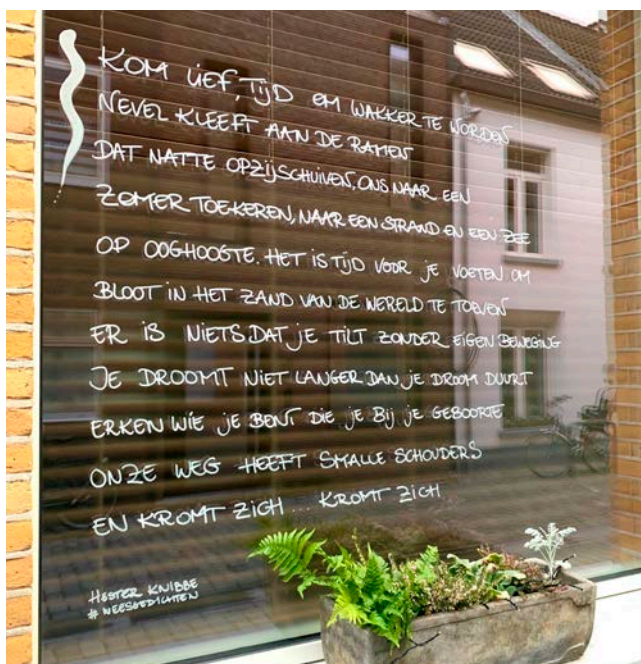 KOM LIEF, TIJD OM WAKKER TE WORDEN
NEVEL KLEEFT AAN DE RAMEN
DAT NATTE OPZIJSCHUIVEN, ONS NAAR EEN
ZOMER TOEKEREN, NAAR EEN STRAND EN EEN ZEE
OP OOGHOOGTE. HET IS TIJD VOOR JE VOETEN OM
BLOOT IN HET ZAND VAN DE WERELD TE TOEVEN
ER IS NIETS DAT JE TILT ZONDER EIGEN BEWEGING
JE DROOMT NIET LANGER DAN JE DROOM DUURT
ERKEN WIE JE BENT DIE JE BIJ JE GEBOORTE
ONZE WEG HEEFT SMALLE SCHOUDERS
EN KROMT ZICH ... KROMT ZICH
HESTER KNIBBE
#RAAMGEDICHTEN